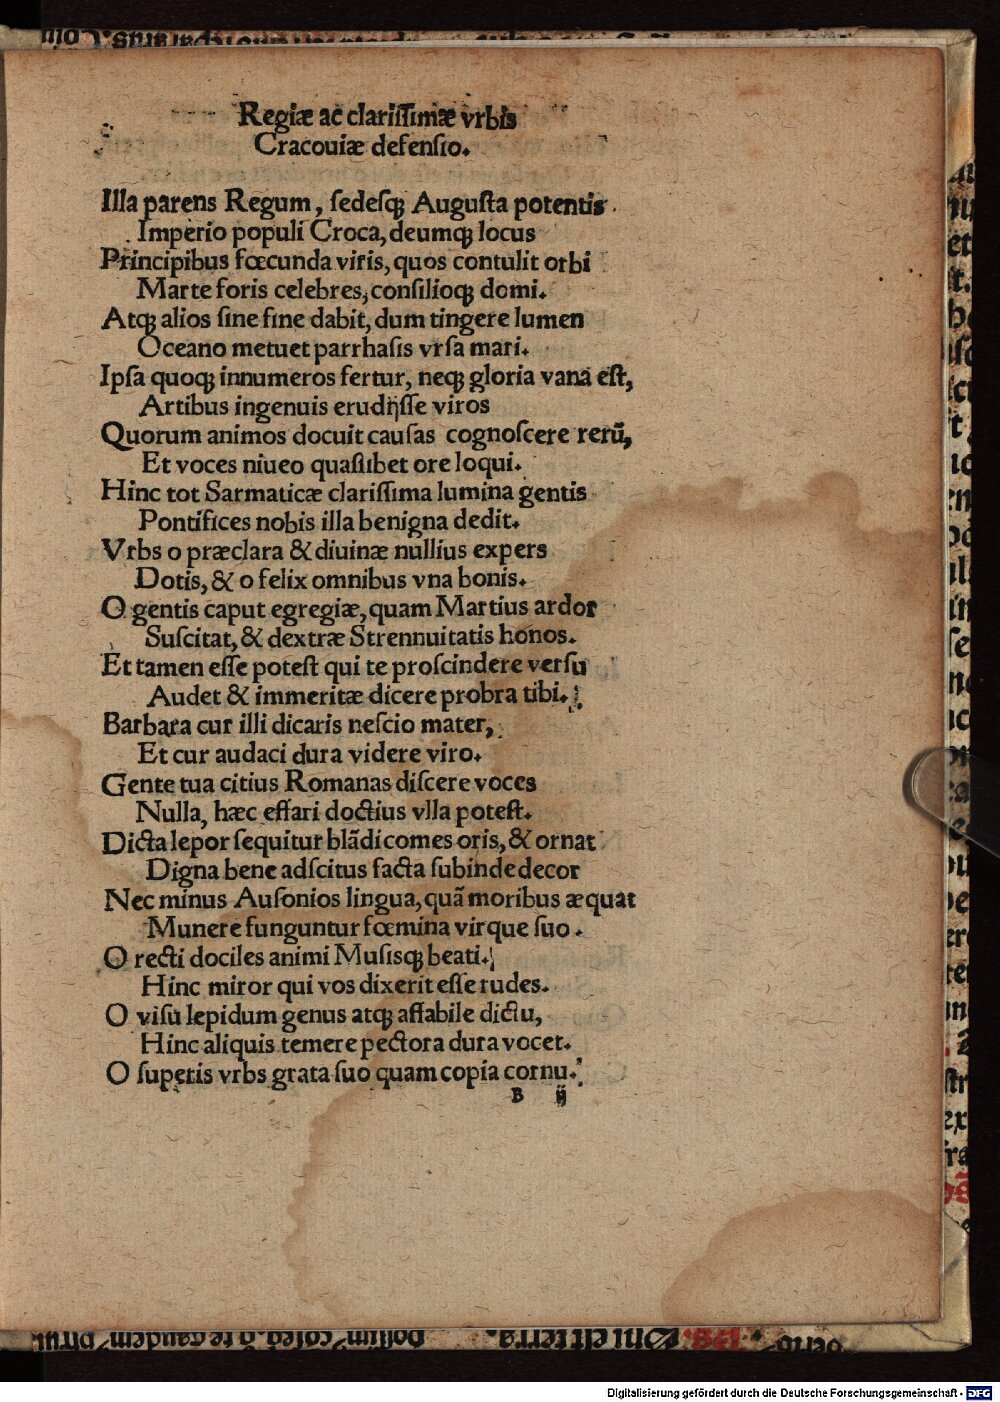 Regiæ ac clariſſimæ vrbis
Cracouiæ defenſio.
Illa parens Regum, ſedeſq; Auguſta potentis
Imperio populi Croca, deumq; locus
Principibus fœcunda viris, quos contulit orbi
Marte foris celebres, conſilioq; domi.
Atq; alios ſine fine dabit, dum tingere lumen
Oceano metuet parrhasis vrſa mari.
Ipſa quoq; innumeros fertur, neq; gloria vana eſt,
Artibus ingenuis erudijſſe viros
Quorum animos docuit cauſas cognoſcere rerũ,
Et voces niueo quaſlibet ore loqui.
Hinc tot Sarmaticæ clariſſima lumina gentis
Pontifices nobis illa benigna dedit.
Vrbs o præclara & diuinæ nullius expers
Dotis, & o felix omnibus vna bonis.
O gentis caput egregiæ, quam Martius ardor
Suſcitat, & dextræ Strennuitatis honos.
Et tamen eſſe poteſt qui te proſcindere verſu
Audet & immeritæ dicere probra tibi.
Barbara cur illi dicaris neſcio mater,
Et cur audaci dura videre viro.
Gente tua citius Romanas diſcere voces
Nulla, hæc effari doctius vlla poteſt.
Dicta lepor ſequitur blãdi comes oris, & ornat
Digna bene adſcitus facta ſubinde decor
Nec minus Auſonios lingua, quã moribus æquat
Munere funguntur fœmina virque ſuo.
O recti dociles animi Muſisq; beati.
Hinc miror qui vos dixerit eſſe rudes.
O viſu lepidum genus atq; affabile dictu,
Hinc aliquis temere pectora dura vocet.
O ſuperis vrbs grata ſuo quam copia cornu.
B ij
Digitalisierung gefördert durch die Deutsche Forschungsgemeinschaft - DFG